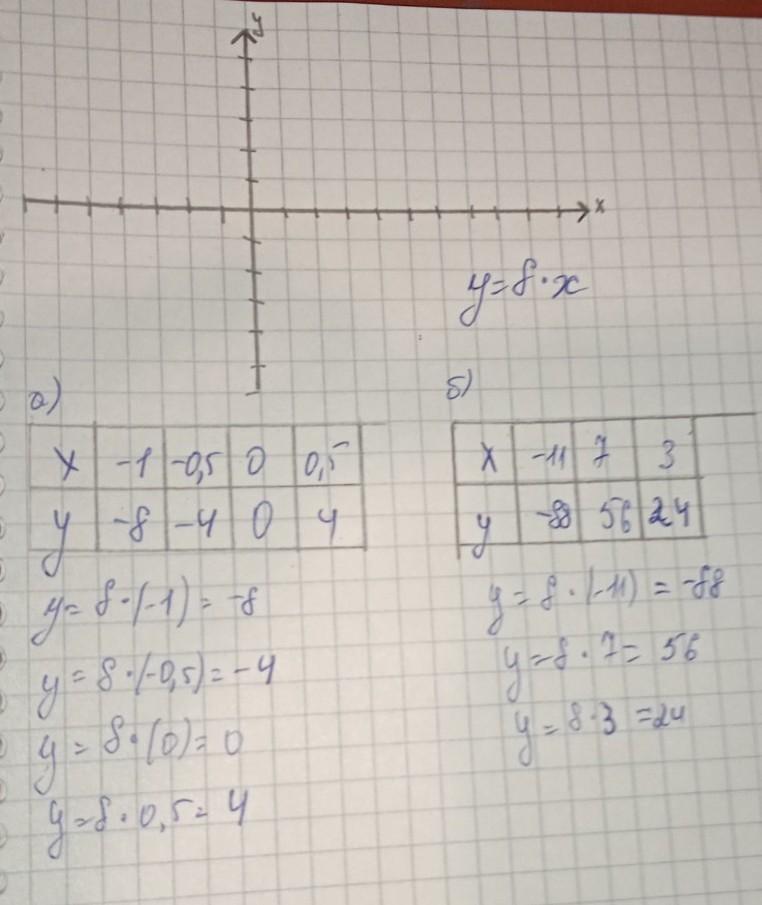 y
x
y=8·x
а)
x -1 -0,5 0 0,5
y -8 -4 0 4
y= 8·(-1)= -8
y = 8·(-0,5)= -4
y = 8·(0)= 0
y=8·0,5= 4
б)
x -11 7 3
y -88 56 24
y = 8·(-11) = -88
y=8·7= 56
y= 8·3 =24